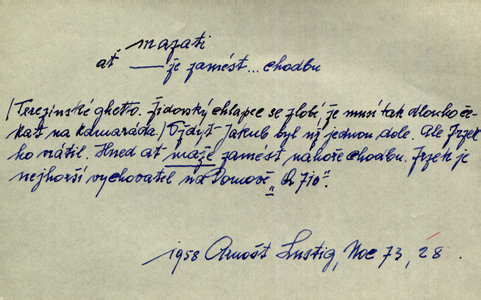 mazati
ať —— že zamést... chodbu
/Terezínské ghetto. Židovský chlapec se zlobí, že musí tak dlouho če-
kat na kamaráda./ Vždyť Jakub byl už jednou dole. Ale Frzek
ho vrátil. Hned ať máže zamést nahoře chodbu. Frzek je
nejhorší vychovatel na Domově "Q 710".
1958 Arnošt Lustig, Noc 73, 28.